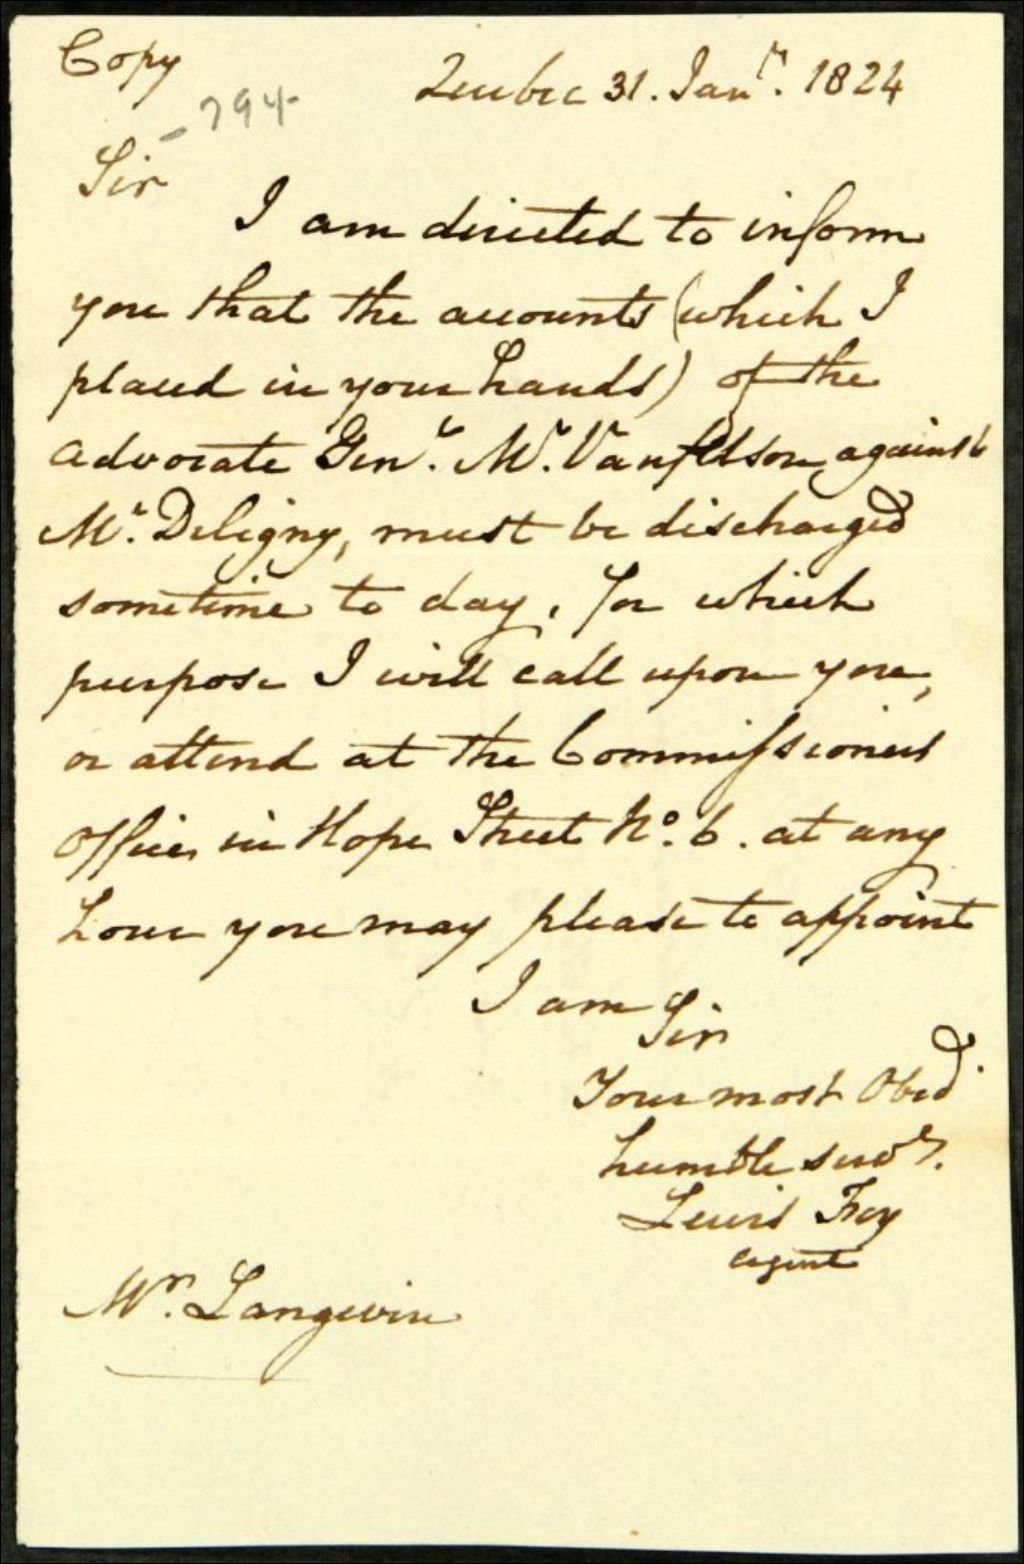 Copy
Quebec 31. Jany. 1824
794
Sir
I am directed to inform
you that the accounts (which I
placed in your hands) of the
advocate Genl. Mr. Vanfelson, against
Mr. Deligny, must be discharged
sometime to day, for which
purpose I will call upon you,
or attend at the Commissioners
Office, in Hope Street No. 6. at any
hour you may please to appoint
I am Sir
Your most Obed.
humble servt.
Lewis Foy
agent
Mr. Langevin